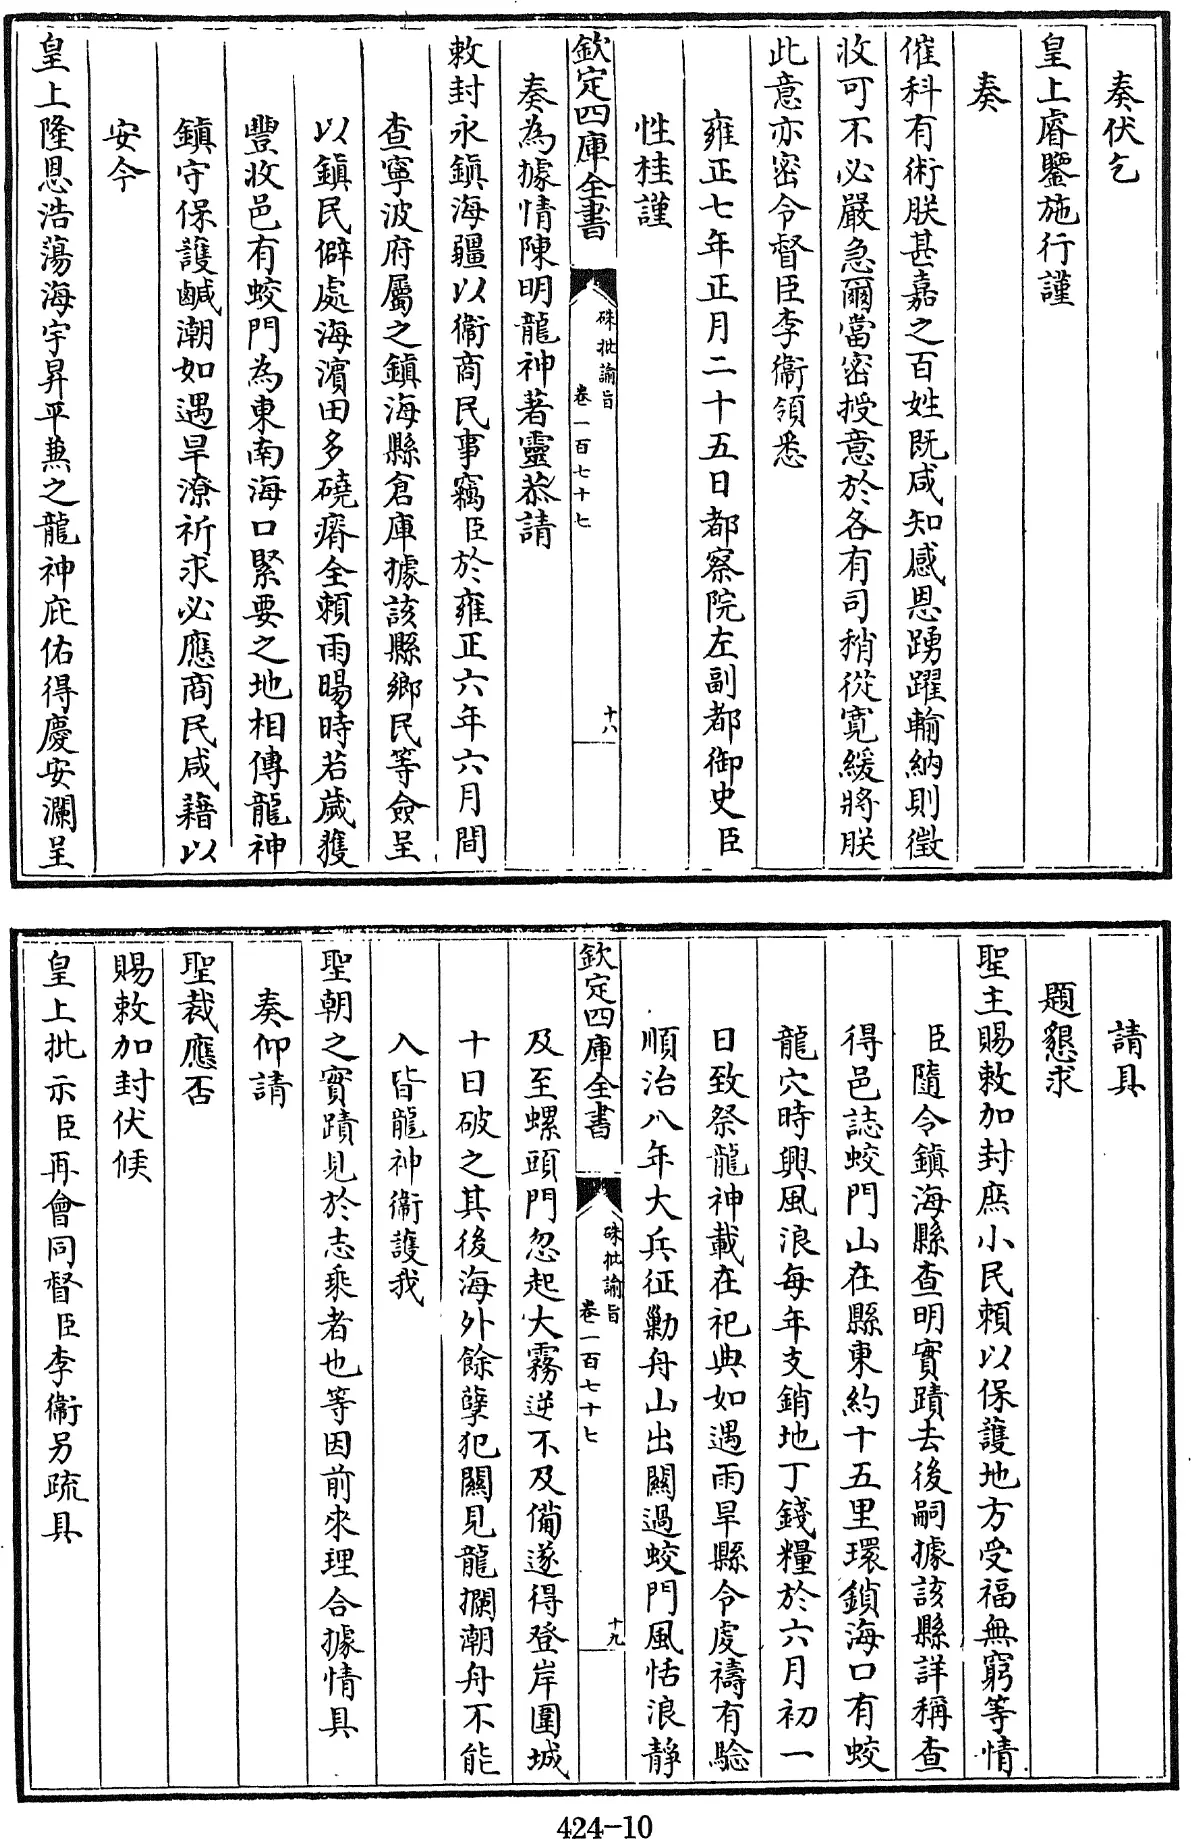 奏伏乞
皇上睿鑒施行謹
奏
催科有術朕甚嘉之百姓既咸知感恩踴躍輸納則徵
收可不必嚴急爾當密授意於各有司稍從寬緩將朕
此意亦密令督臣李衞領悉
雍正七年正月二十五日都察院左副都御史臣
性桂謹
欽定四庫全書
硃批諭旨
卷一百七十七
十八
奏為據情陳明龍神著靈恭請
敕封永鎮海疆以衞商民事竊臣於雍正六年六月間
查寧波府屬之鎮海縣倉庫據該縣鄉民等僉呈
以鎮民僻處海濱田多磽瘠全賴雨暘時若歲獲
豐收邑有蛟門為東南海口緊要之地相傳龍神
鎮守保護鹹潮如遇旱潦祈求必應商民咸藉以
安今
皇上隆恩浩蕩海宇昇平兼之龍神庇佑得慶安瀾呈
請具
題懇求
聖主賜敕加封庶小民賴以保護地方受福無窮等情
臣隨令鎮海縣查明實蹟去後嗣據該縣詳稱查
得邑誌蛟門山在縣東約十五里環鎖海口有蛟
龍穴時興風浪每年支銷地丁錢糧於六月初一
日致祭龍神載在祀典如遇雨旱縣令虔禱有驗
順治八年大兵征勦舟山出關過蛟門風恬浪靜
欽定四庫全書
硃批諭旨
卷一百七十七
十九
及至螺頭門忽起大霧逆不及備遂得登岸圍城
十日破之其後海外餘孽犯關見龍攔潮舟不能
入皆龍神衞護我
聖朝之實蹟見於志乘者也等因前來理合據情具
奏仰請
聖裁應否
賜敕加封伏候
皇上批示臣再會同督臣李衞另疏具
424-10